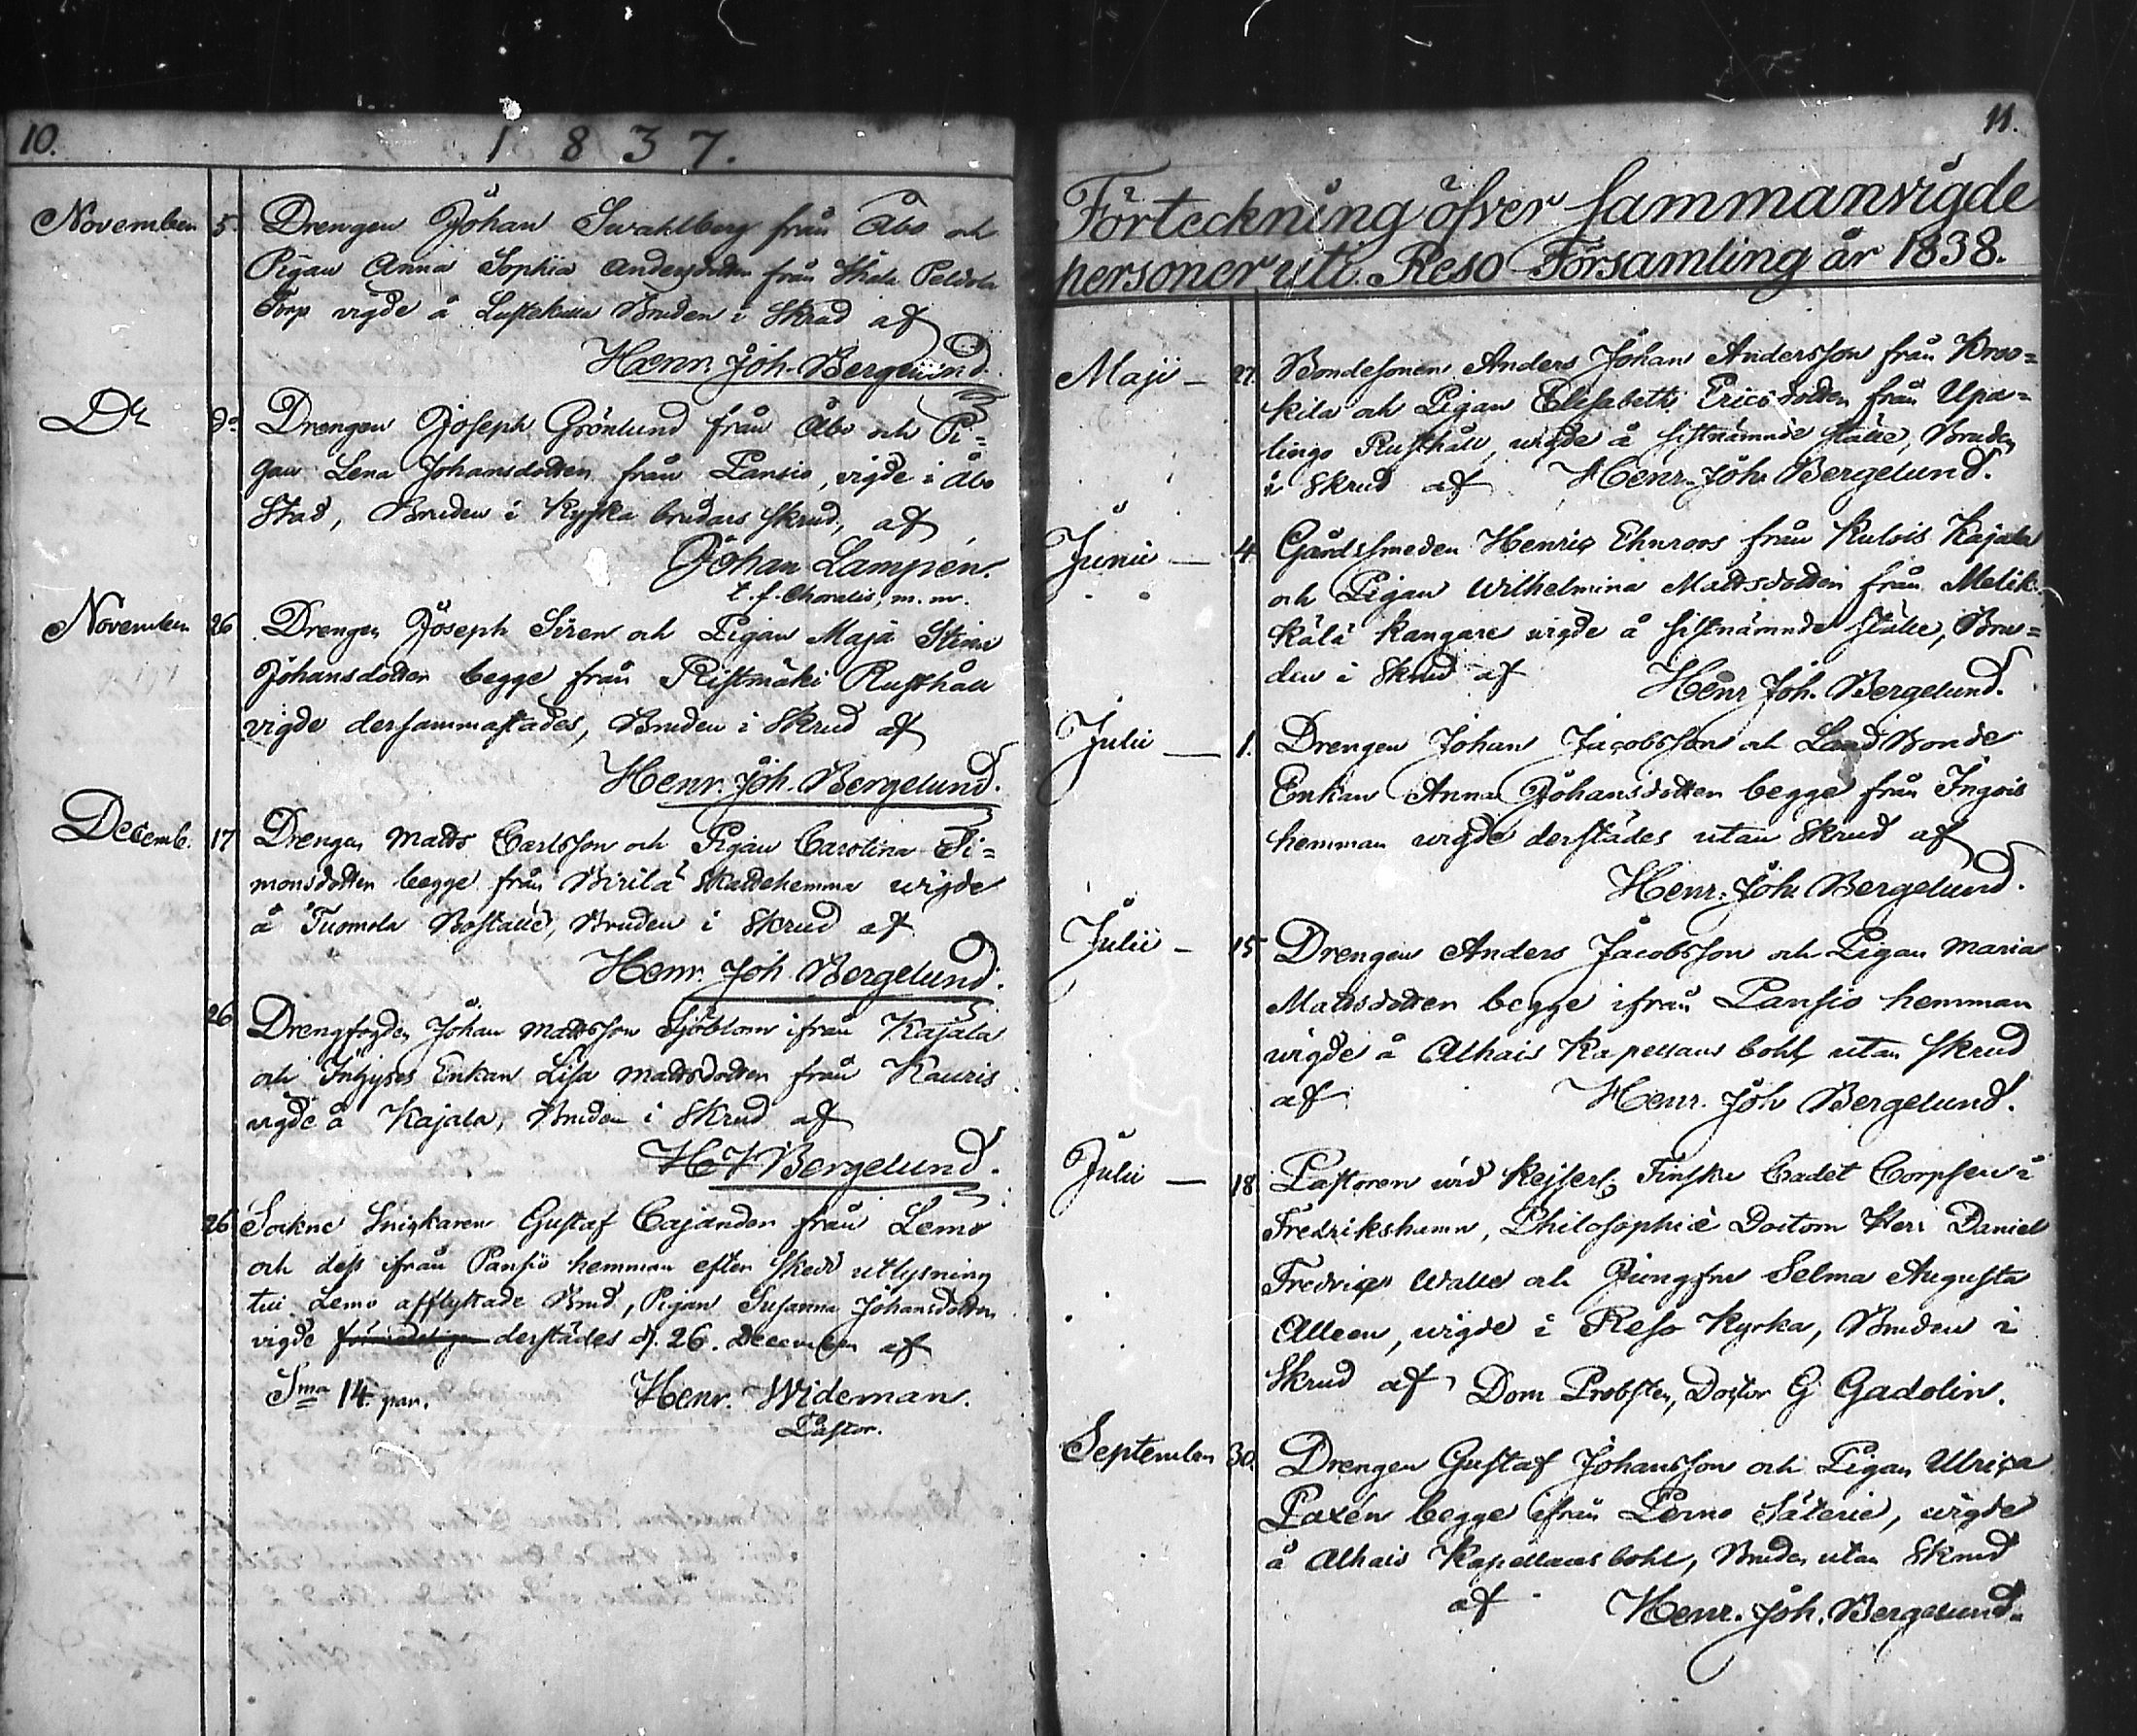 10.
1837.
Novemben 5. Drengen Johan Swahlberg från Åbo och
Pigan Anna Sophia Andersdotter från Ihala Peldola
Torp vigde å Luftekulla Bruden i Skrud af
Henr. Joh. Bergelund.
Do do Drengen Joseph Grönlund från Åbo och Pi=
gan Lena Johansdotter från Pansio, vigde i Åbo
Stad, Bruden i Kyrka brudars skrud, af
Johan Lampén.
t. f. Choralis, m. m.
November 26 Drengen Joseph Siren och Pigan Maja Stina
Johansdotter begge från Ristimäki Rusthåll
vigde dersammastädes, Bruden i Skrud af
Henr. Joh. Bergelund.
Decemb. 17 Drengen Matts Carlsson och Pigan Carolina Si=
monsdotter begge från Virilä Skattehemma vigde
å Tuomola Boställe, Bruden i Skrud af
Henr. Joh. Bergelund.
26 Drengfogden Johan Mattsson Sjöblom ifrån Kajala
och Inhyses Enkan Lisa Mattsdotter från Kauris
vigde å Kajala, Bruden i Skrud af
H J Bergelund.
26 Sockne Snickaren Gustaf Cajander från Lemo
och dess ifrån Pansio hemman efter skedd utlysning
till Lemo afflyttade Brud, Pigan Susanna Johansdotter
vigde derstädes d. 26. December af
Sma 14 par. Henr. Wideman.
Pastor.
11.
Förteckning öfver sammanvigde
personer uti Reso Församling år 1838.
Maji — 27. Bondesonen Anders Johan Andersson från Kroo=
kila och Pigan Elisabeth Ericsdotter från Upa=
lingo Rusthåll, vigde å sistnämnde ställe, Bruden
i Skrud af Henr. Joh. Bergelund.
Junii — 4. Gårdssmeden Henric Ehnroos från Kulois Kajala
och Pigan Wilhelmina Mattsdotter från Melik=
kälä Kangare vigde å sistnämnde ställe, Bru=
den i Skrud af Henr. Joh. Bergelund.
Julii — 1. Drengen Johan Jacobsson och LandBonde
Enkan Anna Johansdotter begge från Ingois
hemman vigde derstädes utan Skrud af
Henr. Joh. Bergelund.
Julii — 15 Drengen Anders Jacobsson och Pigan Maria
Mattsdotter begge ifrån Pansio hemman
vigde å Alhais Kapellans bohl utan Skrud
af Henr. Joh Bergelund.
Julii — 18 Pastoren vid Kejserl. Finska Cadet Corpsen i
Fredrikshamn, Philosophiæ Doctorn Herr Daniel
Fredric Walle och Jungfru Selma Augusta
Alleen, vigde i Reso Kyrka, Bruden i
Skrud af Dom Probsten, Doctor G Gadolin.
September 30. Drengen Gustaf Johansson och Pigan Ulrica
Paxén begge ifrån Perno Säterie, vigde
å Alhais Kapellans bohl, Bruden utan Skrud
af Henr. Joh. Bergelund.